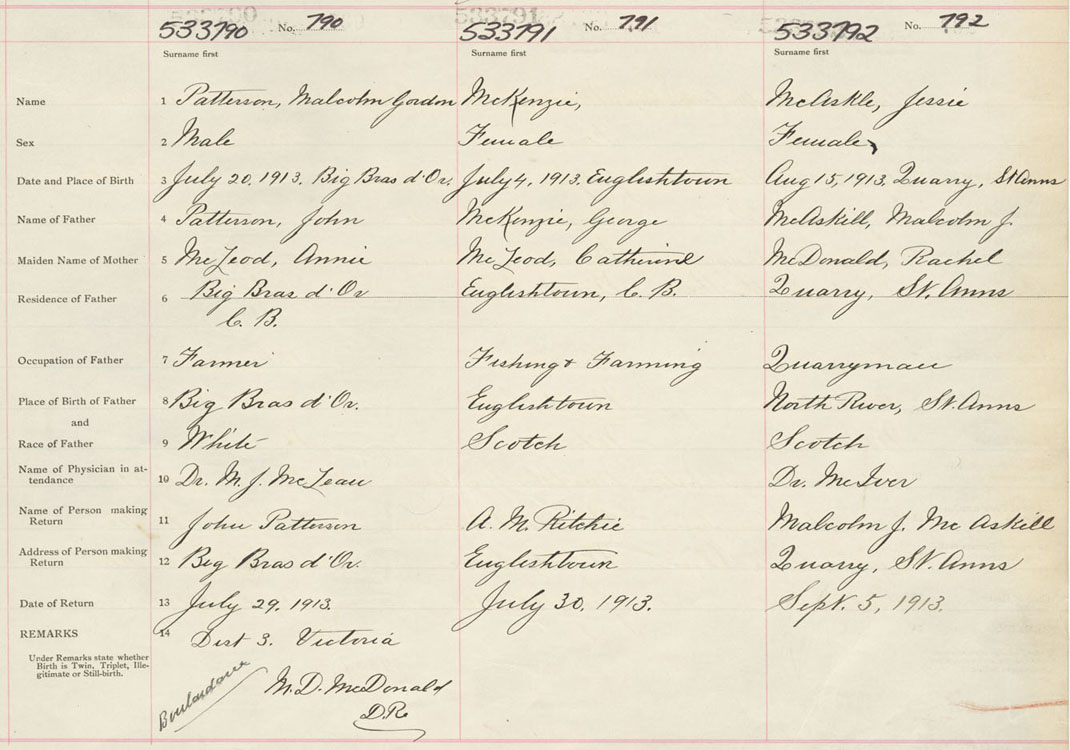 533790 No. 790 533791 No. 791 533792 No. 792
Surname first Surname first Surname first
Name 1 Patterson, Malcolm Gordon McKenzie, McAskle, Jessie
Sex 2 Male Female Female
Date and Place of Birth 3 July 20, 1913. Big Bras d'Or. July 4, 1913. Englishtown Aug 15, 1913. Quarry, St Anns
Name of Father 4 Patterson, John McKenzie, George McAskill, Malcolm J.
Maiden Name of Mother 5 McLeod, Annie McLeod, Catherine McDonald, Rachel
Residence of Father 6 Big Bras d'Or Englishtown, C. B. Quarry, St. Anns
C. B.
Occupation of Father 7 Farmer Fishing & Farming Quarryman
Place of Birth of Father 8 Big Bras d'Or. Englishtown North River, St. Anns
and
Race of Father 9 White Scotch Scotch
Name of Physician in at-
tendance 10 Dr. M. J. McLean Dr. McIver
Name of Person making
Return 11 John Patterson A. M. Ritchie Malcolm J. McAskill
Address of Person making
Return 12 Big Bras d'Or. Englishtown Quarry, St. Anns
Date of Return 13 July 29, 1913. July 30, 1913. Sept. 5, 1913.
REMARKS 14 Dist 3. Victoria
Under Remarks state whether
Birth is Twin, Triplet, Ille-
gitimate or Still-birth.
Boulardarie M. D. McDonald
D.R.